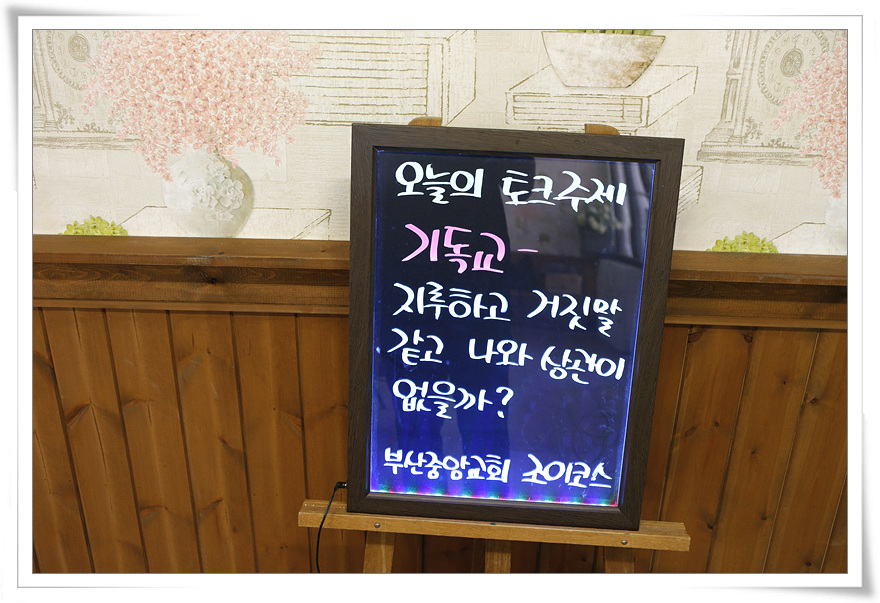 오늘의 토크주제
기독교 -
지루하고 거짓말
같고 나와 상관이
없을까?
부산중앙교회 조이코스